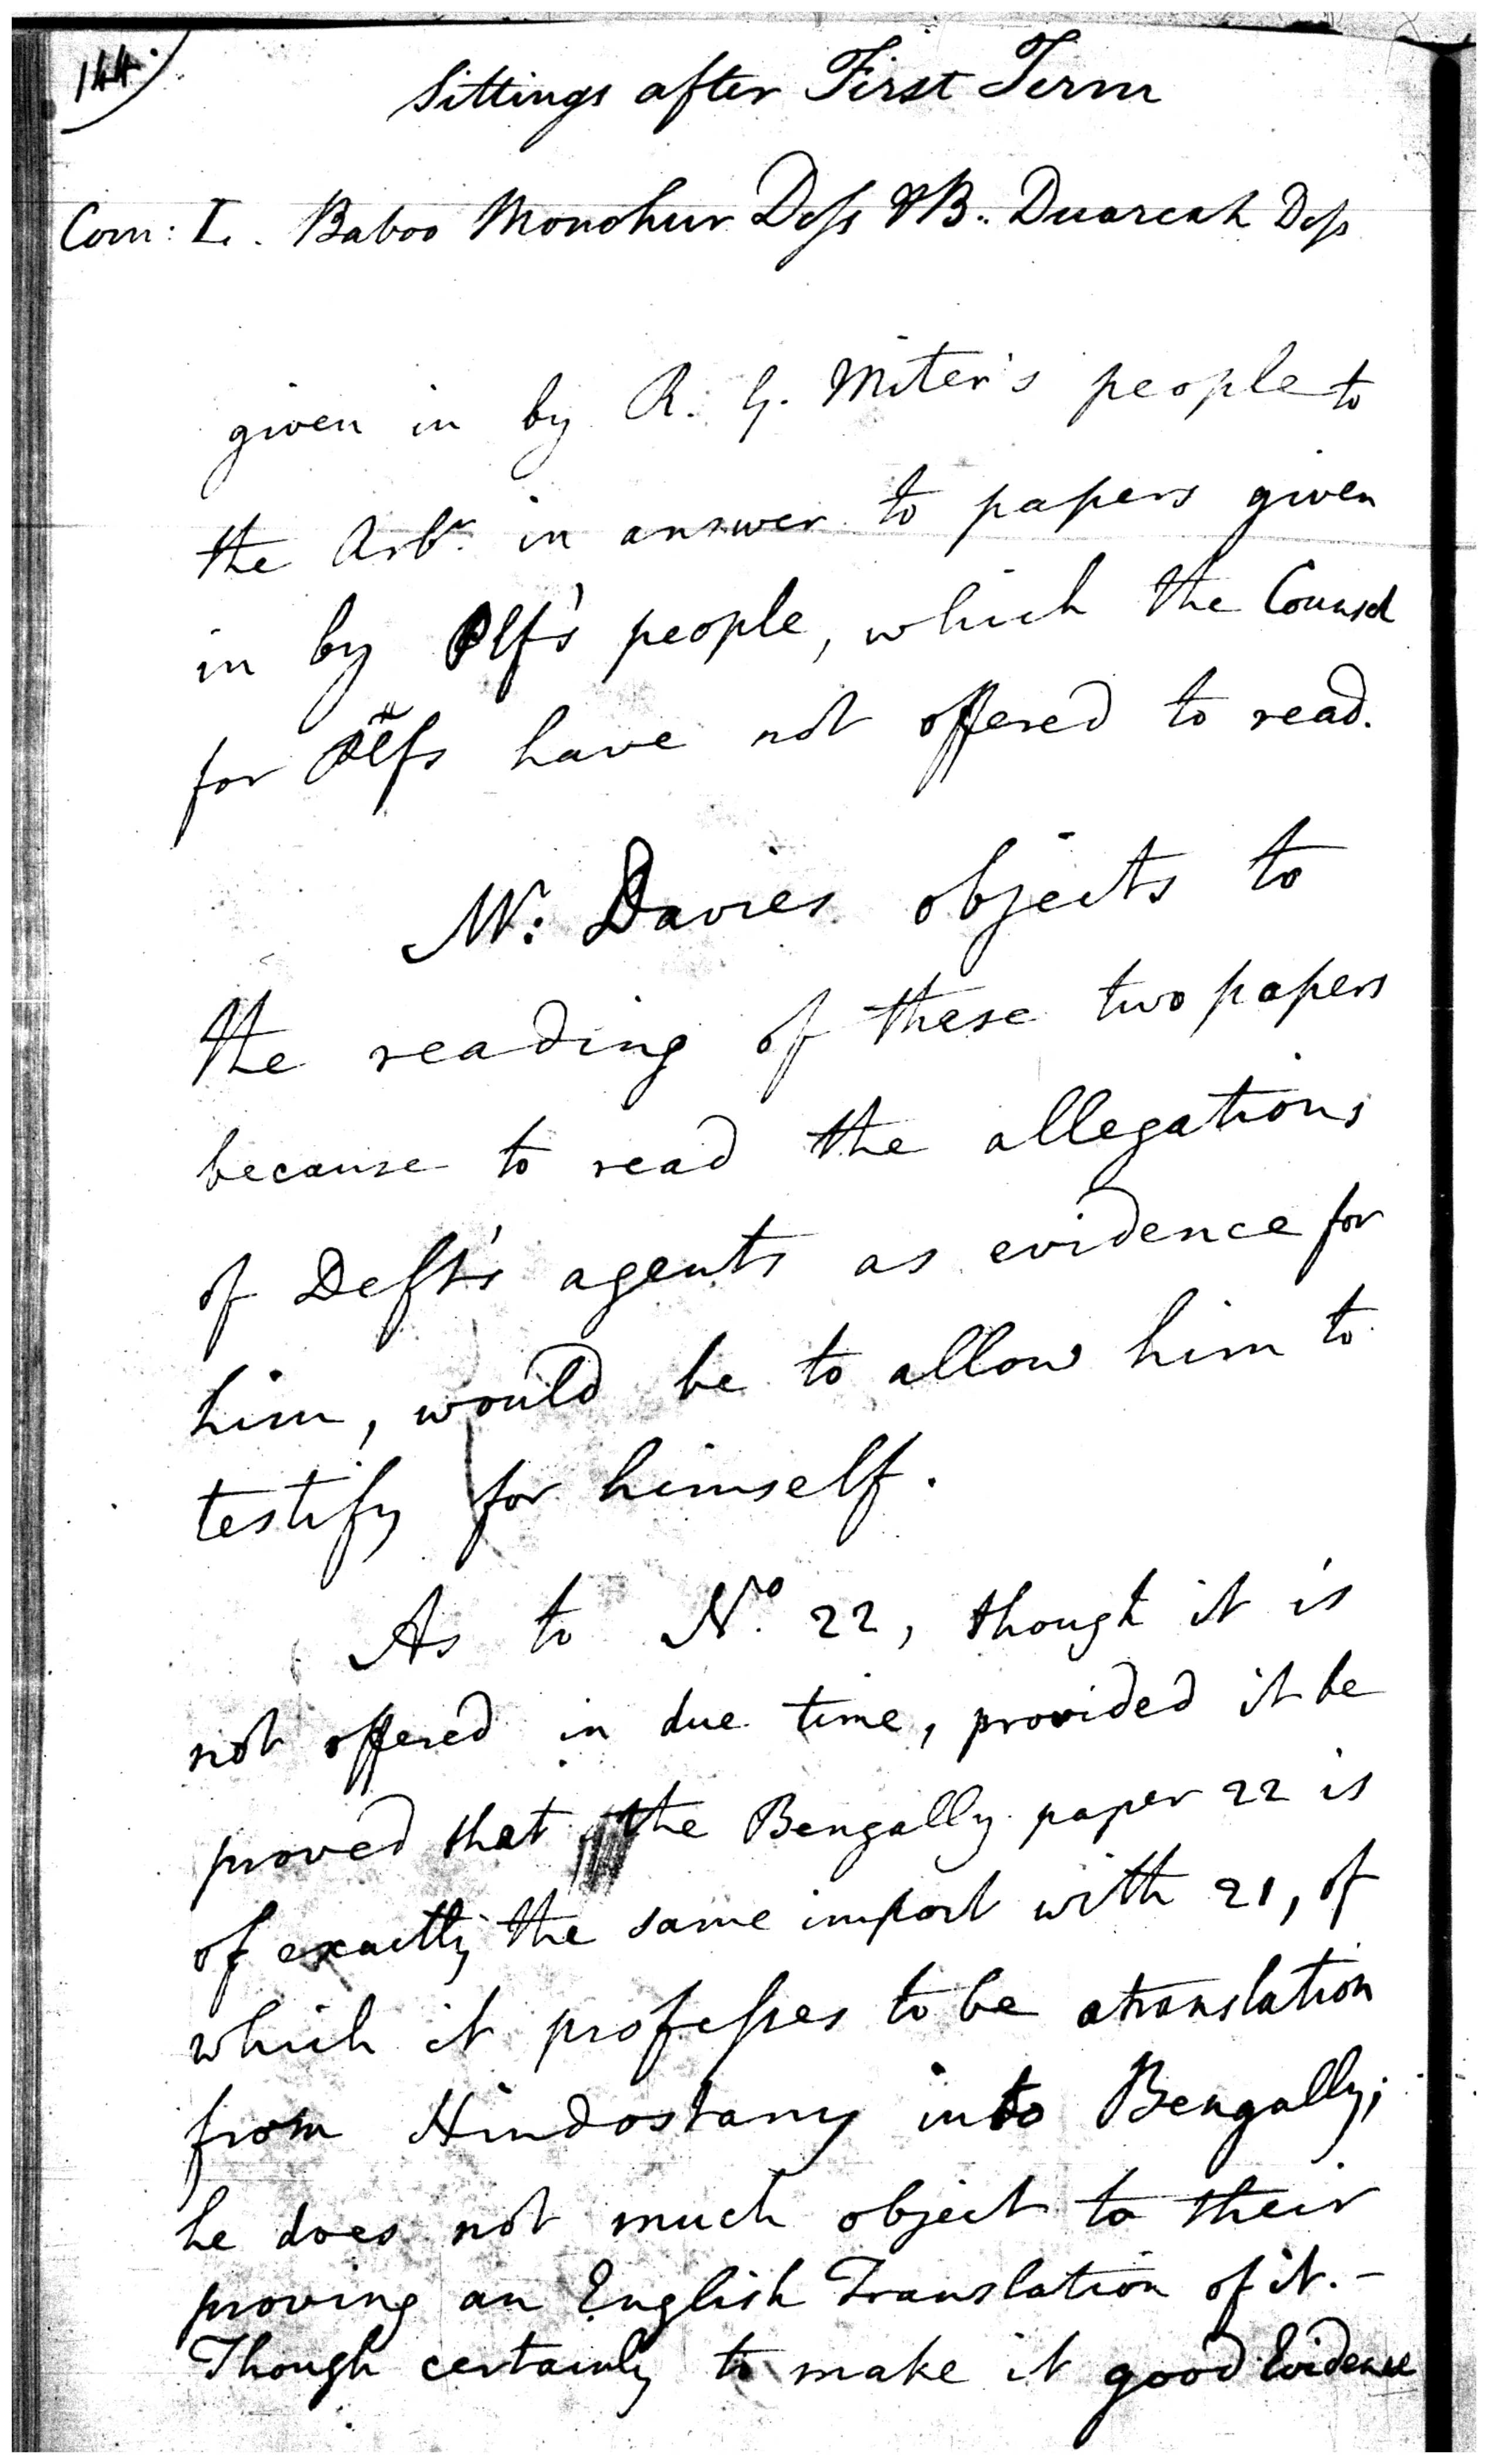 144
Sittings after First Term
Com: L. Baboo Monohur Doss & B. Duarcah Doss
given in by R. G. Miter's people to
the Arbr. in answer to papers given
in by Plf's people, which the Counsel
for Plfs have not offered to read.
Mr: Davies objects to
the reading of these two papers
because to read the allegations
of Deft's agents as evidence for
him, would be to allow him to
testify for himself.
As to No. 22, though it is
not offered in due time, provided it be
proved that the Bengally paper 22 is
of exactly the same import with 21, of
which it professes to be a translation
from Hindostany into Bengally;
he does not much object to their
proving an English Translation of it. -
Though certainly to make it good Evidence